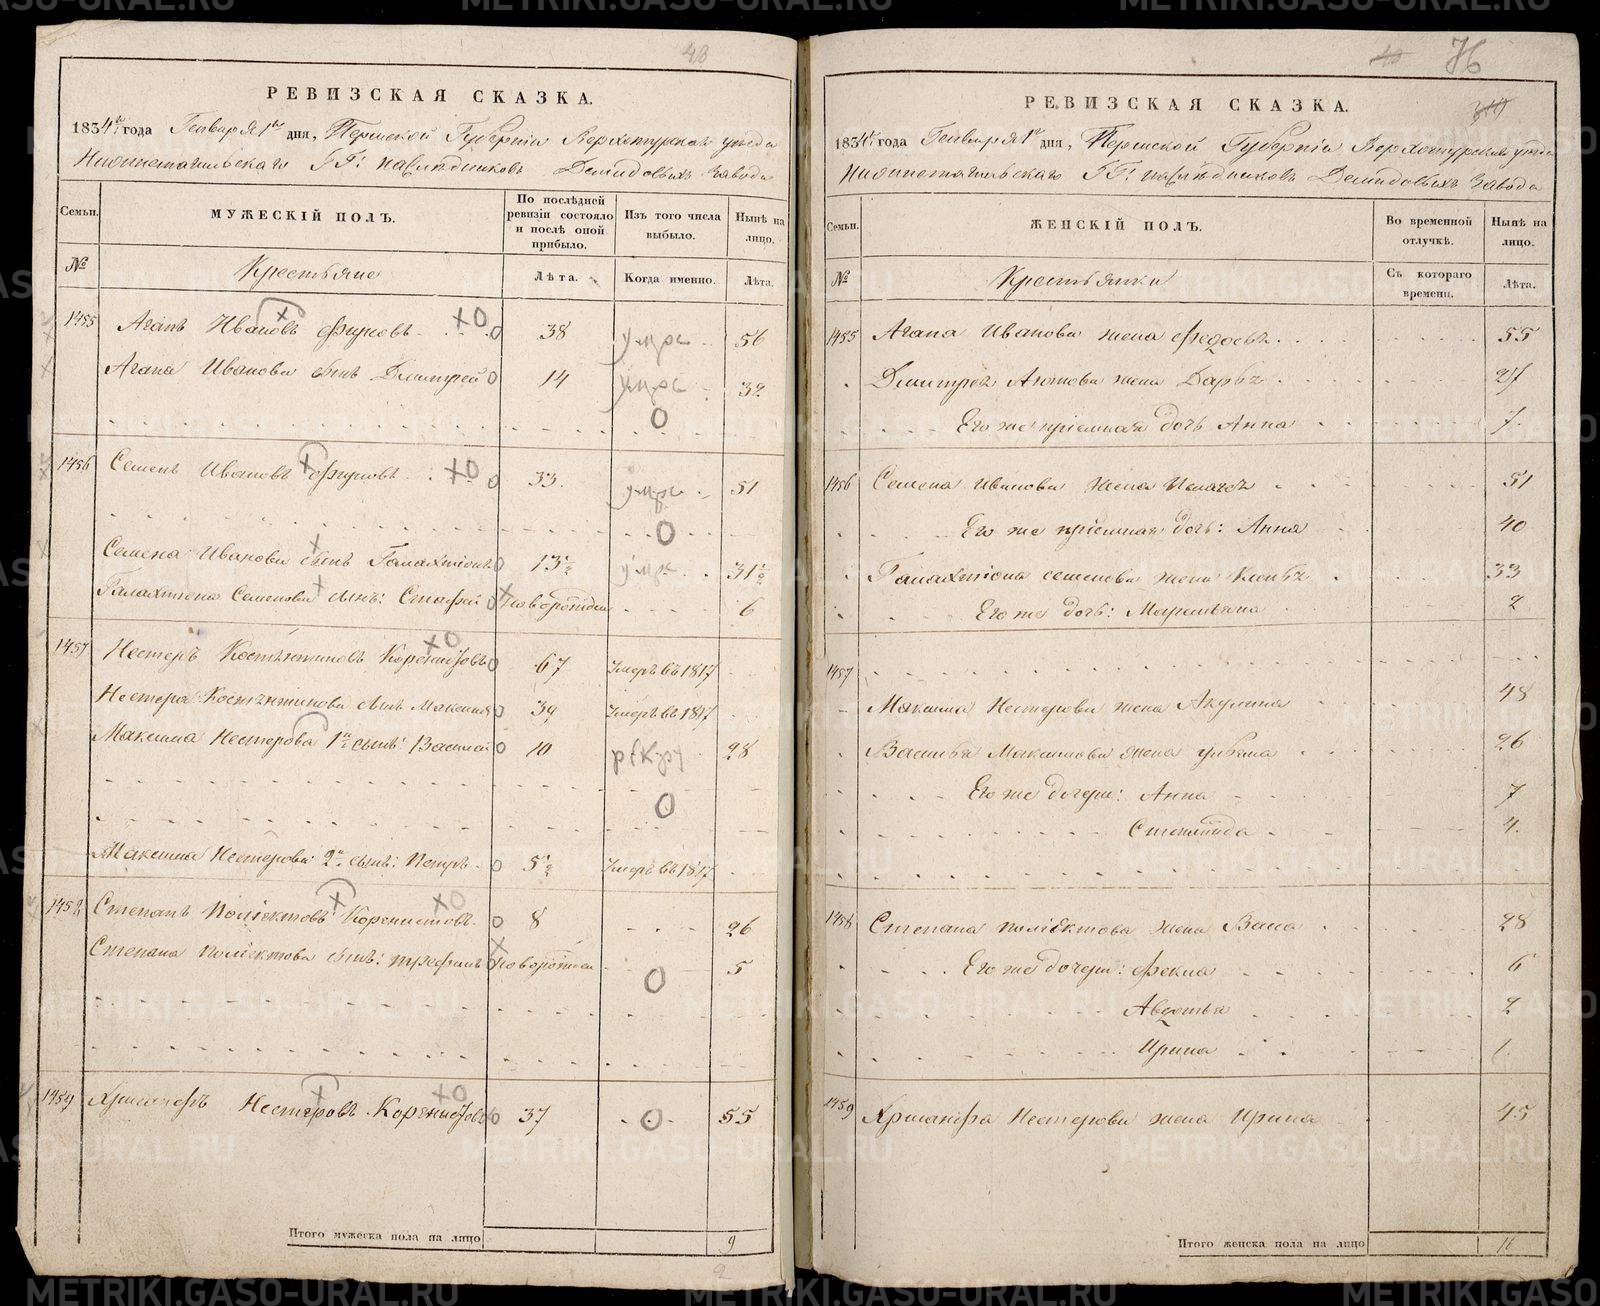 48
РЕВИЗСКАЯ СКАЗКА.
1834 года Генваря 1 дня, Пермской Губерніи Верхотурскаго уезда
Нижнетагильскаго ГГ: наследниковъ Демидовыхъ завода
Семьи.
МУЖЕСКІЙ ПОЛЪ.
По послѣдней ревизіи состояло и послѣ оной прибыло.
Изъ того числа выбыло.
Нынѣ на лицо.
№
Крестьяне
Лѣта.
Когда именно.
Лѣта.
1455 Агапъ Ивановъ 38 умре 56
Агапа Иванова сынъ Димитрей 14 умре 32
1456 Семенъ Ивановъ 33 умре 51
Семена Иванова сынъ Галахтіонъ 13½ умре 31½
Галахтіона Семенова сынъ: новорожден 6
1457 Нестеръ Костентиновъ 67 Умеръ въ 1817
Нестера Костентинова сынъ Максимъ 39 Умеръ въ 1817
Максима Нестерова 1й сынъ: Василей 10 28
Максима Нестерова 2й сынъ: Петръ 5½ Умеръ въ 1817
1458 Степанъ Поліектовъ 8 26
Степана Поліектова сынъ: новорожден 5
1459 Нестеровъ 37 55
Итого мужеска пола на лицо 9
76
РЕВИЗСКАЯ СКАЗКА.
1834 года Генваря 1 дня, Пермской Губерніи Верхотурскаго уезда
Нижнетагильскаго ГГ: наследниковъ Демидовыхъ завода
Семьи.
ЖЕНСКІЙ ПОЛЪ.
Во временной отлучкѣ.
Нынѣ на лицо.
№
Крестьянки
Съ котораго времени.
Лѣта.
1455 Агапа Иванова жена Федосья 55
Димитрея Агапова жена Дарья 27
Его же пріемная дочь Анна 7
1456 Семена Иванова жена Пелагея 51
Его же пріемная дочь: Анна 40
Галахтіона Семенова жена 33
Его же дочь: Маремьяна 2
1457
Максима Нестерова жена Акулина 48
Василья Максимова жена Ульяна 26
Его же дочери: Анна 7
Степанида 4
1458 Степана Поліектова жена Васа 28
Его же дочери: Фекла 6
Авдотья 2
Ирина 1
1459 Нестерова жена Ирина 45
Итого женска пола на лицо
METRIKI.GASO-URAL.RU